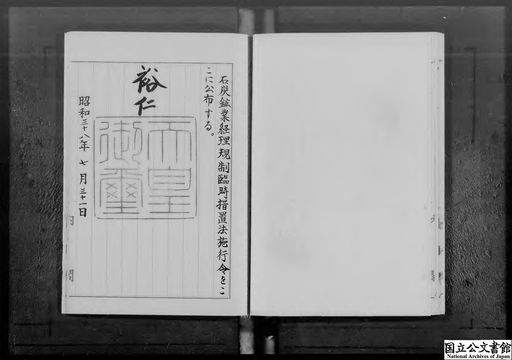 石炭鉱業経理規制臨時措置法施行令をこ
こに公布する。
裕仁
天皇御璽
昭和三十八年七月三十一日
国立公文書館
National Archives of Japan